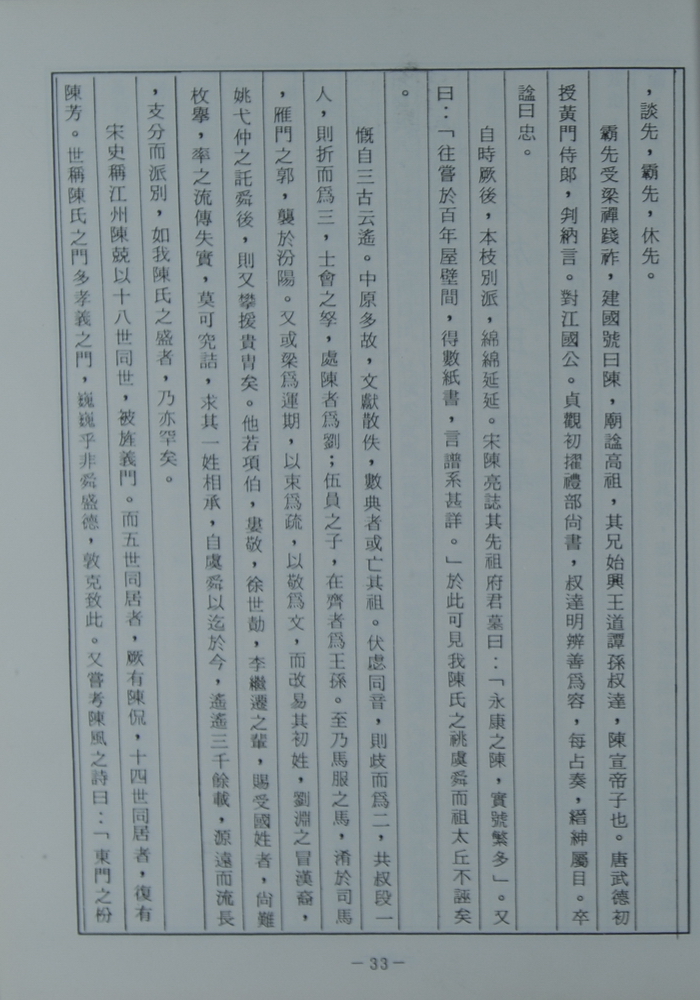 ，談先，霸先，休先。
霸先受梁禪踐祚，建國號曰陳，廟諡高祖，其兄始興王道譚孫叔達，陳宣帝子也。唐武德初
授黃門侍郎，判納言。對江國公。貞觀初擢禮部尚書，叔達明辨善爲容，每占奏，縉紳屬目。卒
諡曰忠。
自時厥後，本枝別派，綿綿延延。宋陳亮誌其先祖府君墓曰：「永康之陳，實號繁多」。又
曰：「往嘗於百年屋壁間，得數紙書，言譜系甚詳。」於此可見我陳氏之祧虞舜而祖太丘不誣矣
。
慨自三古云遙。中原多故，文獻散佚，數典者或亡其祖。伏虙同音，則歧而爲二，共叔段一
人，則折而爲三，士會之孥，處陳者爲劉；伍員之子，在齊者爲王孫。至乃馬服之馬，淆於司馬
，雁門之郭，襲於汾陽。又或梁爲運期，以束爲疏，以敬爲文，而改易其初姓，劉淵之冒漢裔，
姚弋仲之託舜後，則又攀援貴冑矣。他若項伯，婁敬，徐世勣，李繼遷之輩，賜受國姓者，尚難
枚擧，率之流傳失實，莫可究詰，求其一姓相承，自虞舜以迄於今，遙遙三千餘載，源遠而流長
，支分而派別，如我陳氏之盛者，乃亦罕矣。
宋史稱江州陳兢以十八世同世，被旌義門。而五世同居者，厥有陳侃，十四世同居者，復有
陳芳。世稱陳氏之門多孝義之門，巍巍乎非舜盛德，敦克致此。又嘗考陳風之詩曰：「東門之枌
－33－